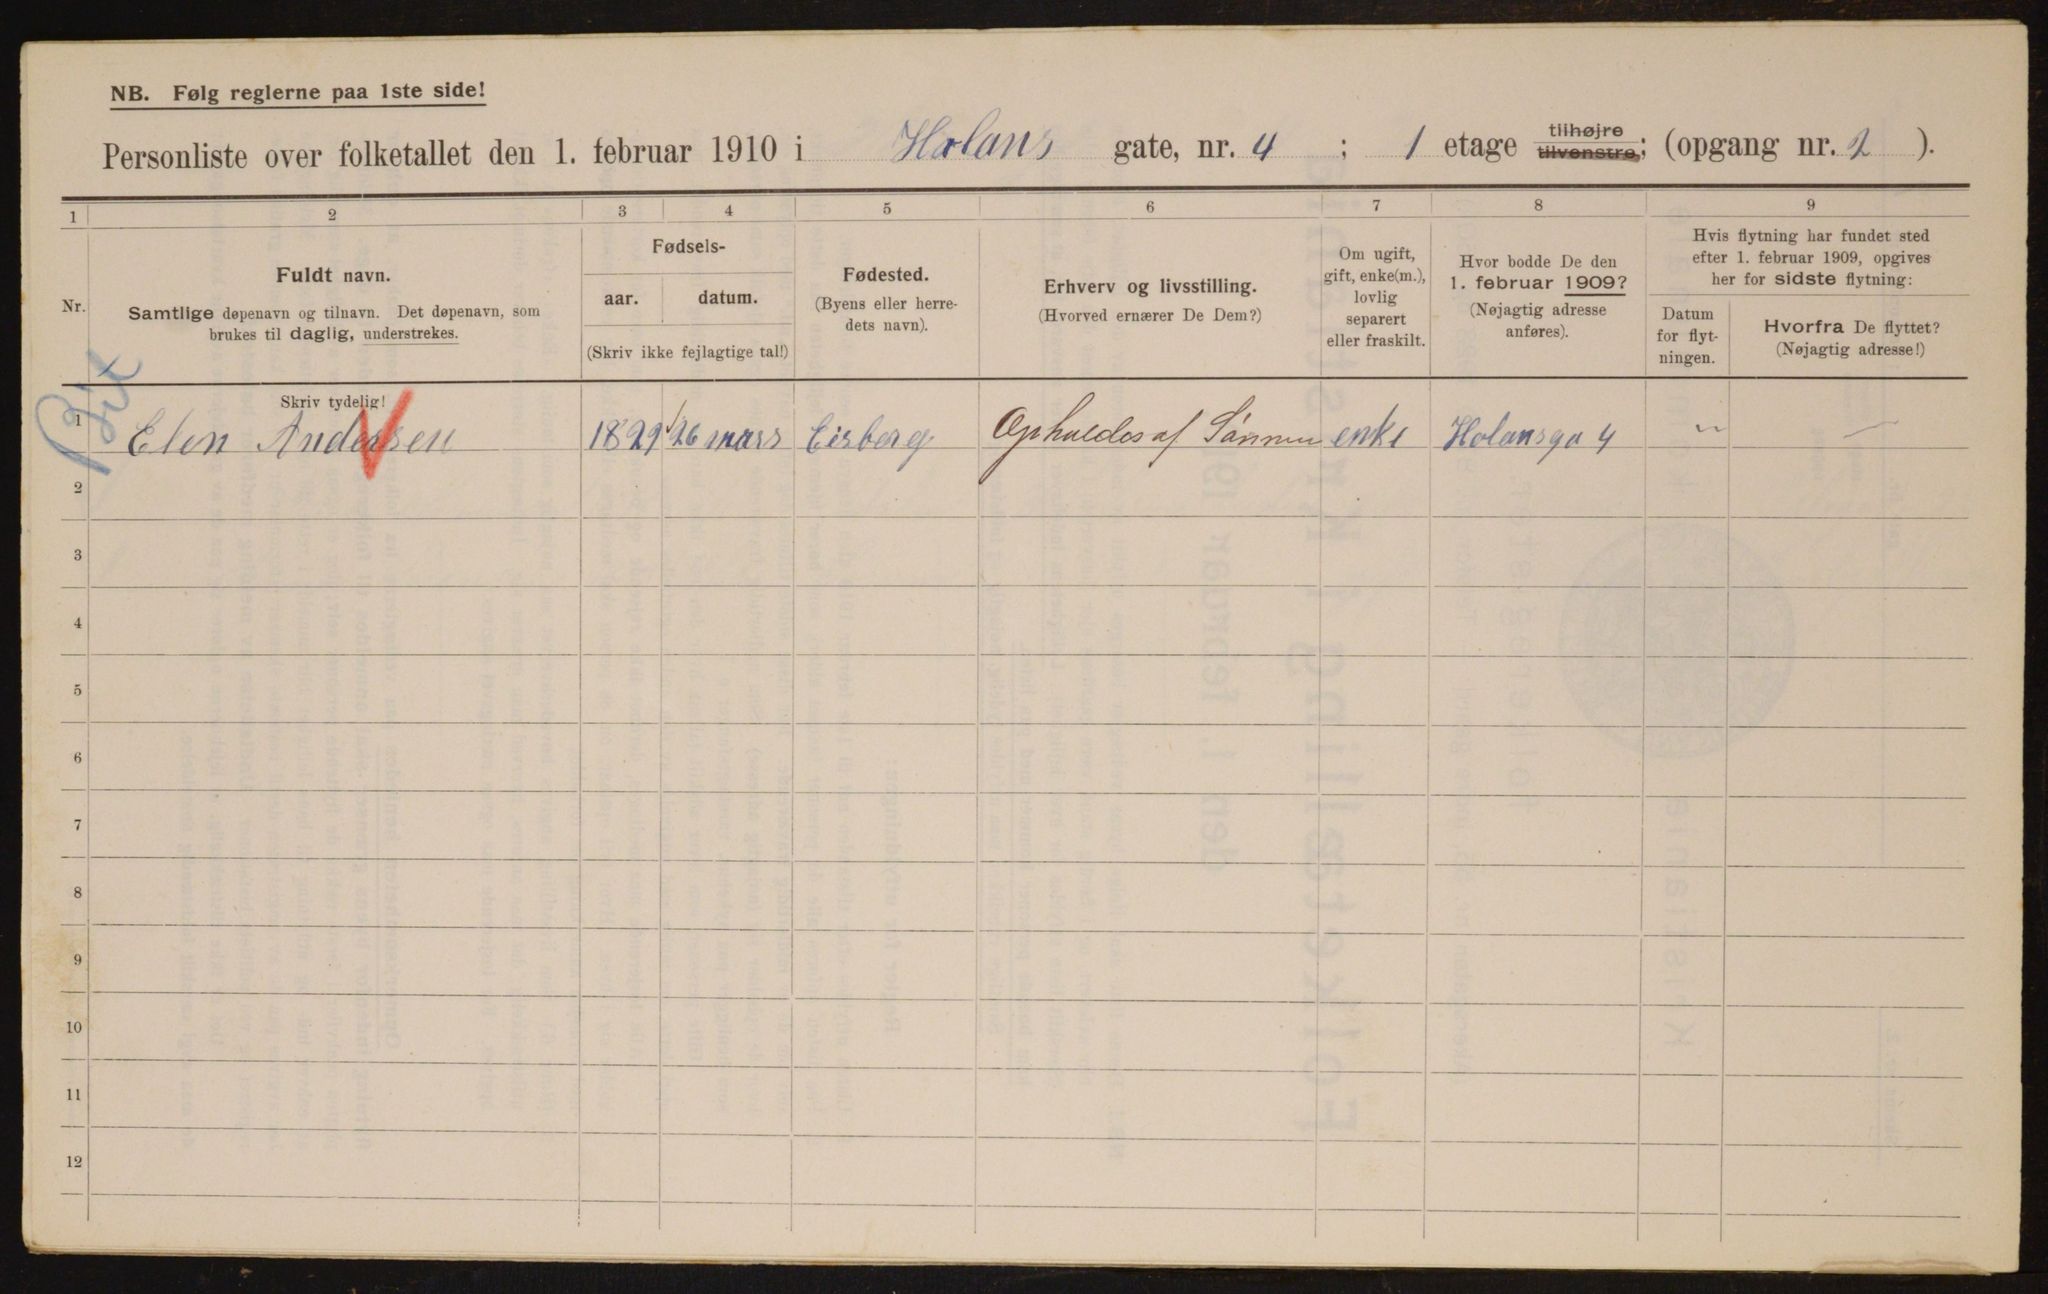 NB. Følg reglerne paa 1ste side!
Personliste over folketallet den 1. februar 1910 i Holans gate, nr. 4 ; 1 etage tilhøjre tilvenstre; (opgang nr. 2 ).
1 2 3 4 5 6 7 8 9
Nr.
Fuldt navn.
Samtlige døpenavn og tilnavn. Det døpenavn, som
brukes til daglig, understrekes.
Fødsels-
aar. datum.
(Skriv ikke fejlagtige tal!)
Fødested.
(Byens eller herre-
dets navn).
Erhverv og livsstilling.
(Hvorved ernærer De Dem?)
Om ugift,
gift, enke(m.),
lovlig
separert
eller fraskilt.
Hvor bodde De den
1. februar 1909?
(Nøjagtig adresse
anføres).
Hvis flytning har fundet sted
efter 1. februar 1909, opgives
her for sidste flytning:
Datum
for flyt-
ningen.
Hvorfra De flyttet?
(Nøjagtig adresse!)
Skriv tydelig!
1 Elen Andersen 1829 26 mars Eisberg Opholdes af Sønnen enke Holansga 4 " —
2
3
4
5
6
7
8
9
10
11
12